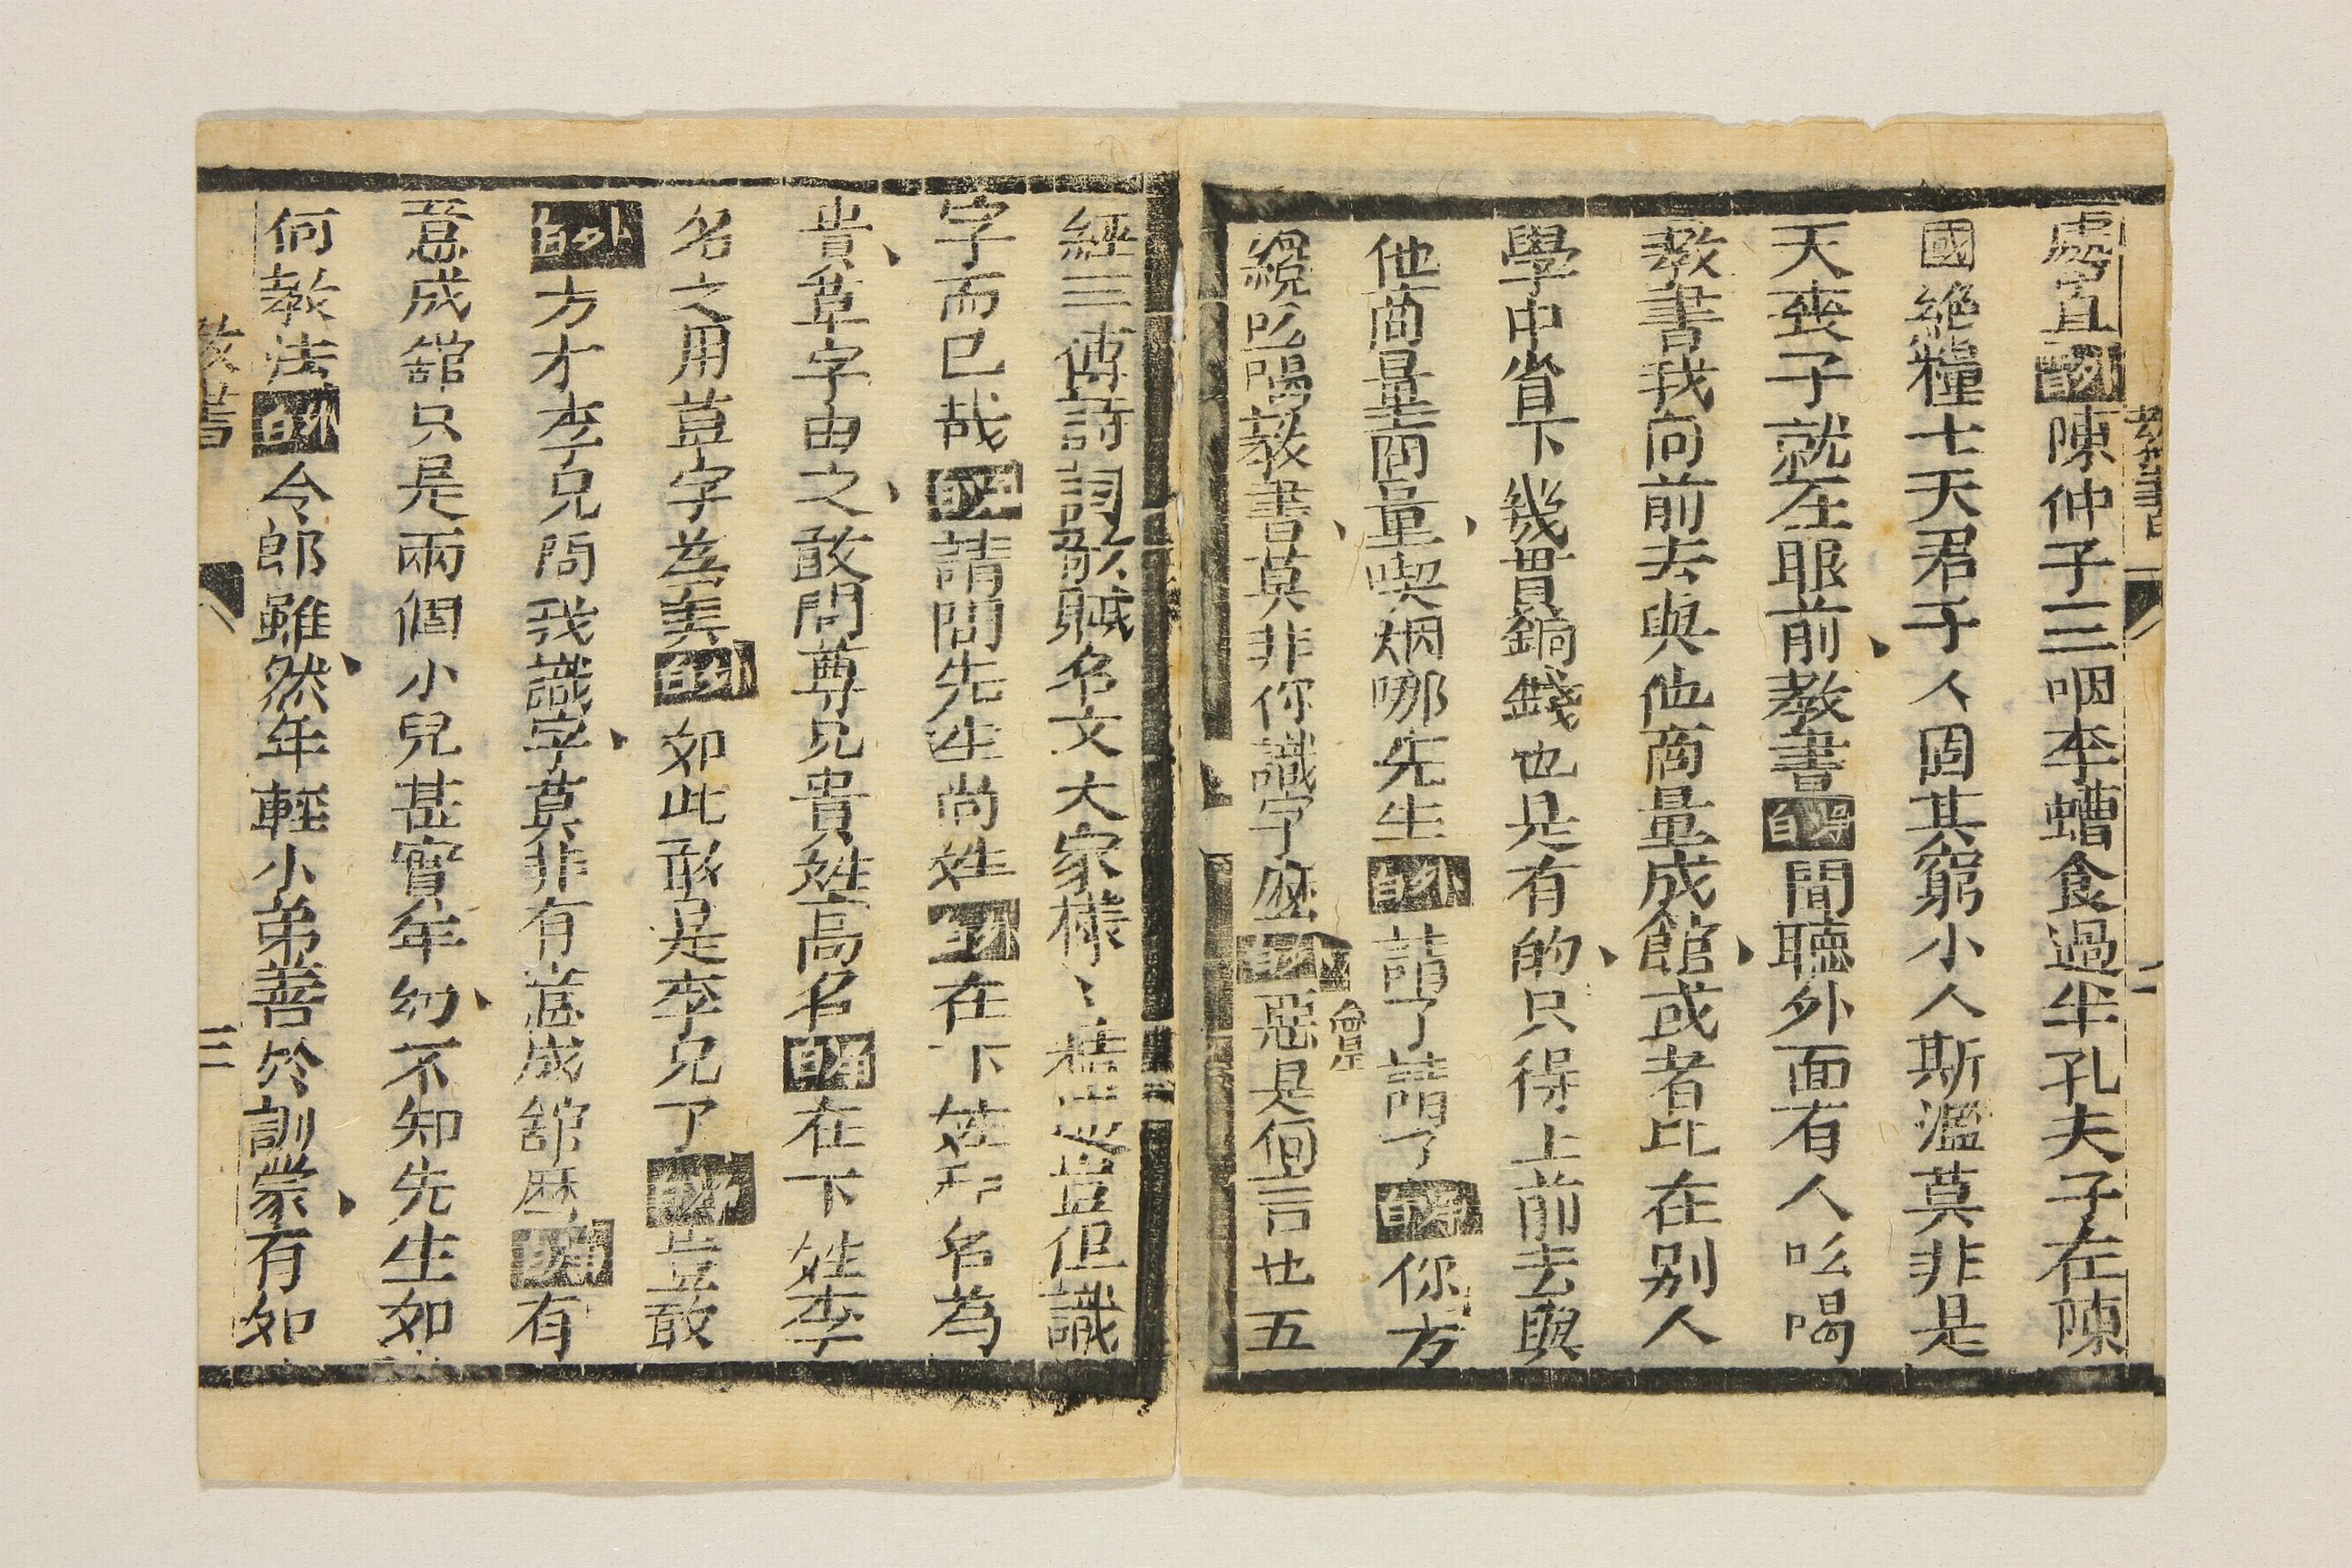 教書
二
處宜 陳仲子三咽李螬食過半孔夫子在陳
國絶糧七天君子人固其窮小人斯濫莫非是
天喪子就在眼前教書 間聽外面有人吆喝
教書我向前去與他商量成館或者比在別人
學中省下幾貫銅錢也是有的只得上前去與
他商量商量喫烟哪先生 請了請了 你方
纔吆喝教書莫非你識字庅 惡是何言也五
會星
經三傳詩詞歌賦名文大家樣〻精 豈但識
字而已哉 請問先生尚姓 在下姓和名為
貴草字由之敢問尊兄貴姓高名 在下姓李
名之用草字為美 如此敢是李兄了 豈敢
方才李兄問我識字莫非有意成舘庅 有
意成舘只是兩個小兒甚實年幼不知先生如
何教法 令郎雖然年輕小弟善於訓蒙有如
教書
三